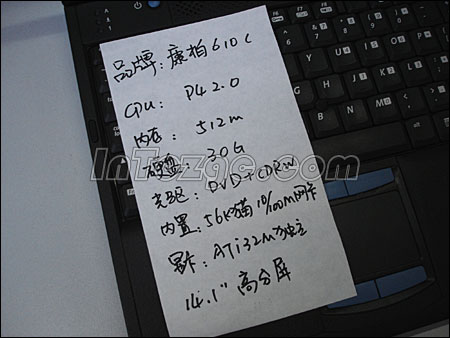 品牌: 康柏 610c
CPU: P4 2.0
内存: 512m
硬盘: 30G
InTozgc.com
光驱: DVD+CDRW
内置: 56K猫 10/100m网卡
显卡: ATi32m独立
14.1" 高分屏